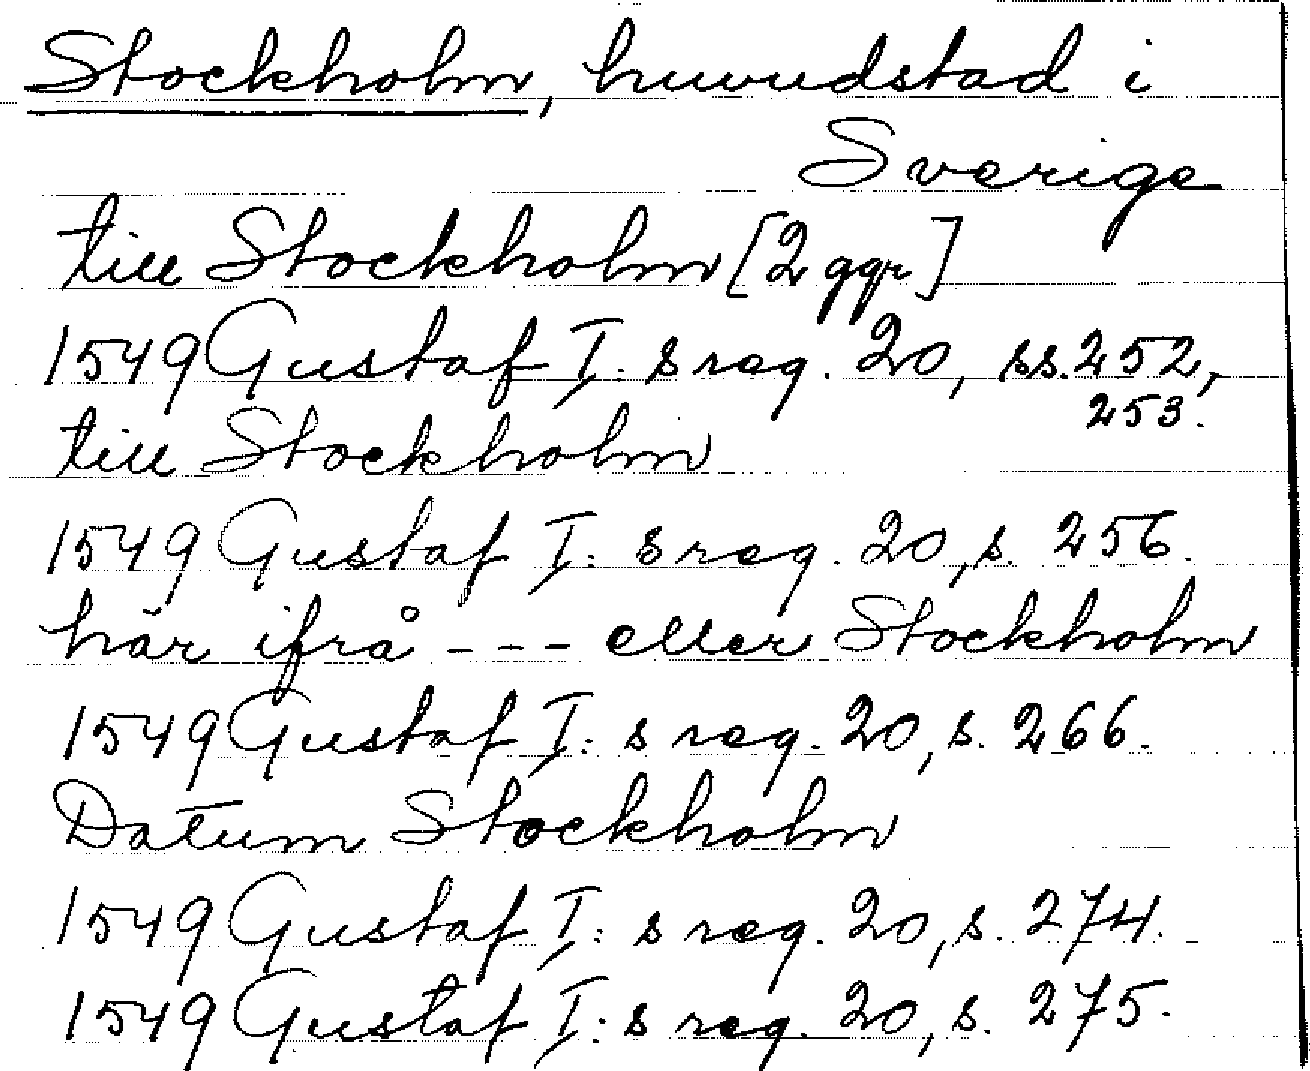 Stockholm, huvudstad i
Sverige
till Stockholm [2 ggr]
1549 Gustaf I: s reg. 20, ss. 252,
253.
till Stockholm
1549 Gustaf I: s reg. 20, s. 256.
här ifrå - - - eller Stockholm
1549 Gustaf I: s reg. 20, s. 266.
Datum Stockholm
1549 Gustaf I: s reg. 20, s. 274.
1549 Gustaf I: s reg. 20, s. 275.